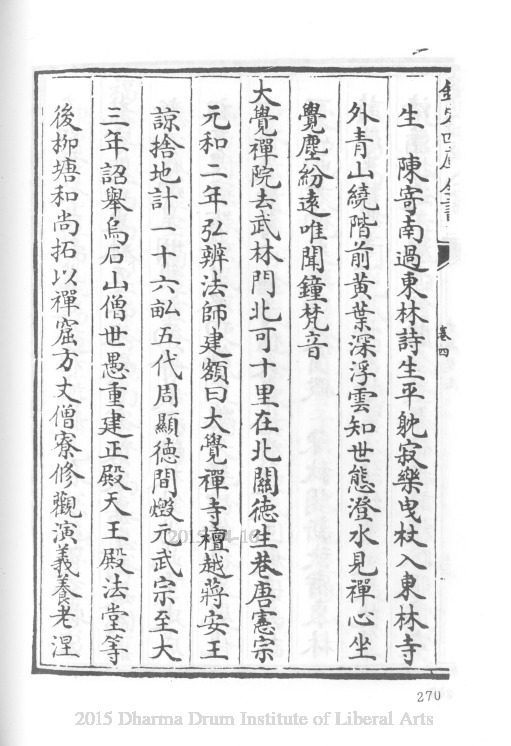 欽定四庫全書
卷四
生　陳寄南過東林詩生平躭寂樂曳杖入東林寺
外青山繞階前黃葉深浮雲知世態澄水見禪心坐
覺塵紛遠唯聞鐘梵音
大覺禪院去武林門北可十里在北關徳生巷唐憲宗
元和二年弘辨法師建額曰大覺禪寺檀越蔣安王
諒捨地計一十六畝五代周顯徳間燬元武宗至大
三年詔舉烏石山僧世愚重建正殿天王殿法堂等
後柳塘和尚拓以禪窟方丈僧寮修觀演義養老涅
270
2015 Dharma Drum Institute of Liberal Arts